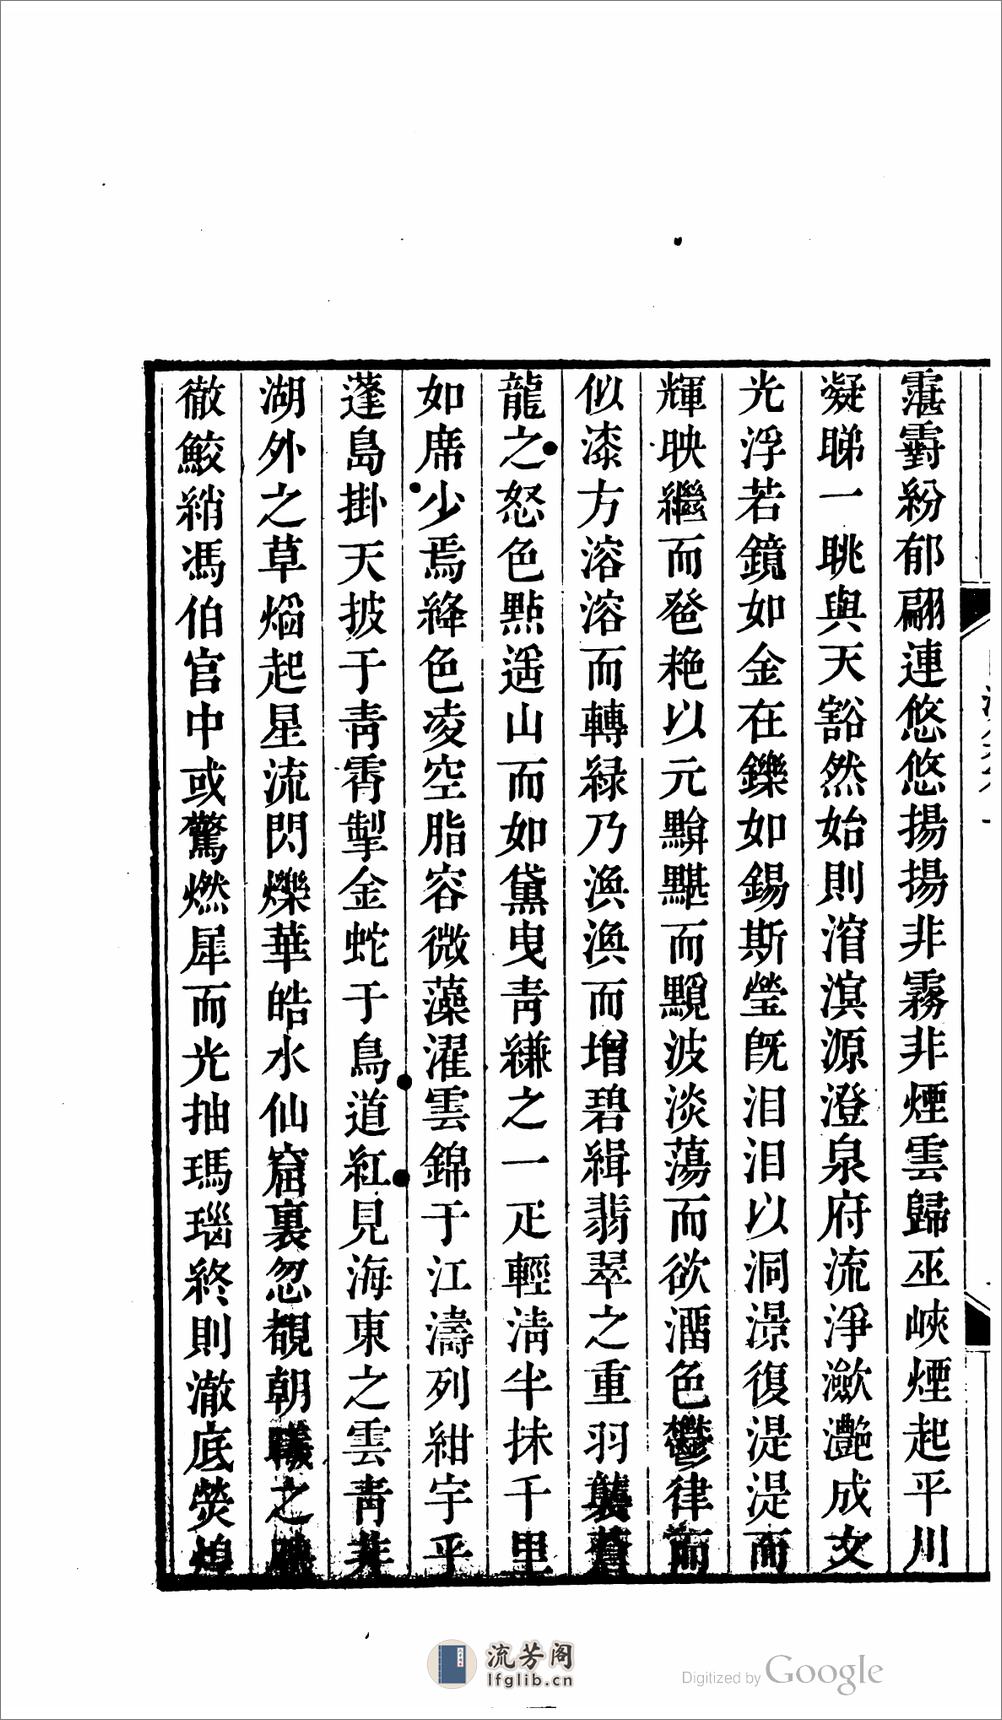 霮䨴紛郁翩連悠悠揚揚非霧非煙雲歸巫峽煙起平川
凝睇一眺與天豁然始則涽溟源澄泉府流淨瀲灔成文
光浮若鏡如金在鑠如錫斯瑩旣汨汨以洞澋復湜湜而
輝映繼而發艳以元黭黮而黤波淡蕩而欲湎色鬱律而
似漆方溶溶而轉緑乃渙渙而增碧緝翡翠之重羽襲蒼
龍之怒色點遥山而如黛曳青縑之一疋輕淸半抹千里
如席少焉絳色凌空脂容微藻濯雲錦于江濤列紺宇乎
蓬島掛天披于靑霄掣金蛇于鳥道紅見海東之雲靑茁
湖外之草熖起星流閃爍華皓水仙窟裏忽覩朝曦之
徹鮫綃馮伯官中或驚燃犀而光抽瑪瑙終則澈底熒煌
流芳阁
lfglib.cn
Digitized by Google